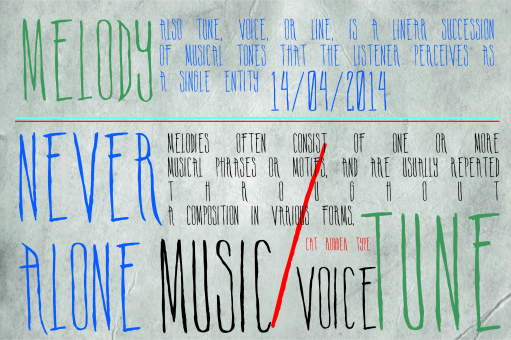 MELODY
ALSO TUNE, VOICE, OR LINE, IS A LINEAR SUCCESSION
OF MUSICAL TONES THAT THE LISTENER PERCEIVES AS
A SINGLE ENTITY 14/04/2014
NEVER
MELODIES OFTEN CONSIST OF ONE OR MORE
MUSICAL PHRASES OR MOTIFS, AND ARE USUALLY REPEATED
THROUGHOUT
A COMPOSITION IN VARIOUS FORMS.
ALONE MUSIC/VOICE
CAT RUBBER TYPE
TUNE